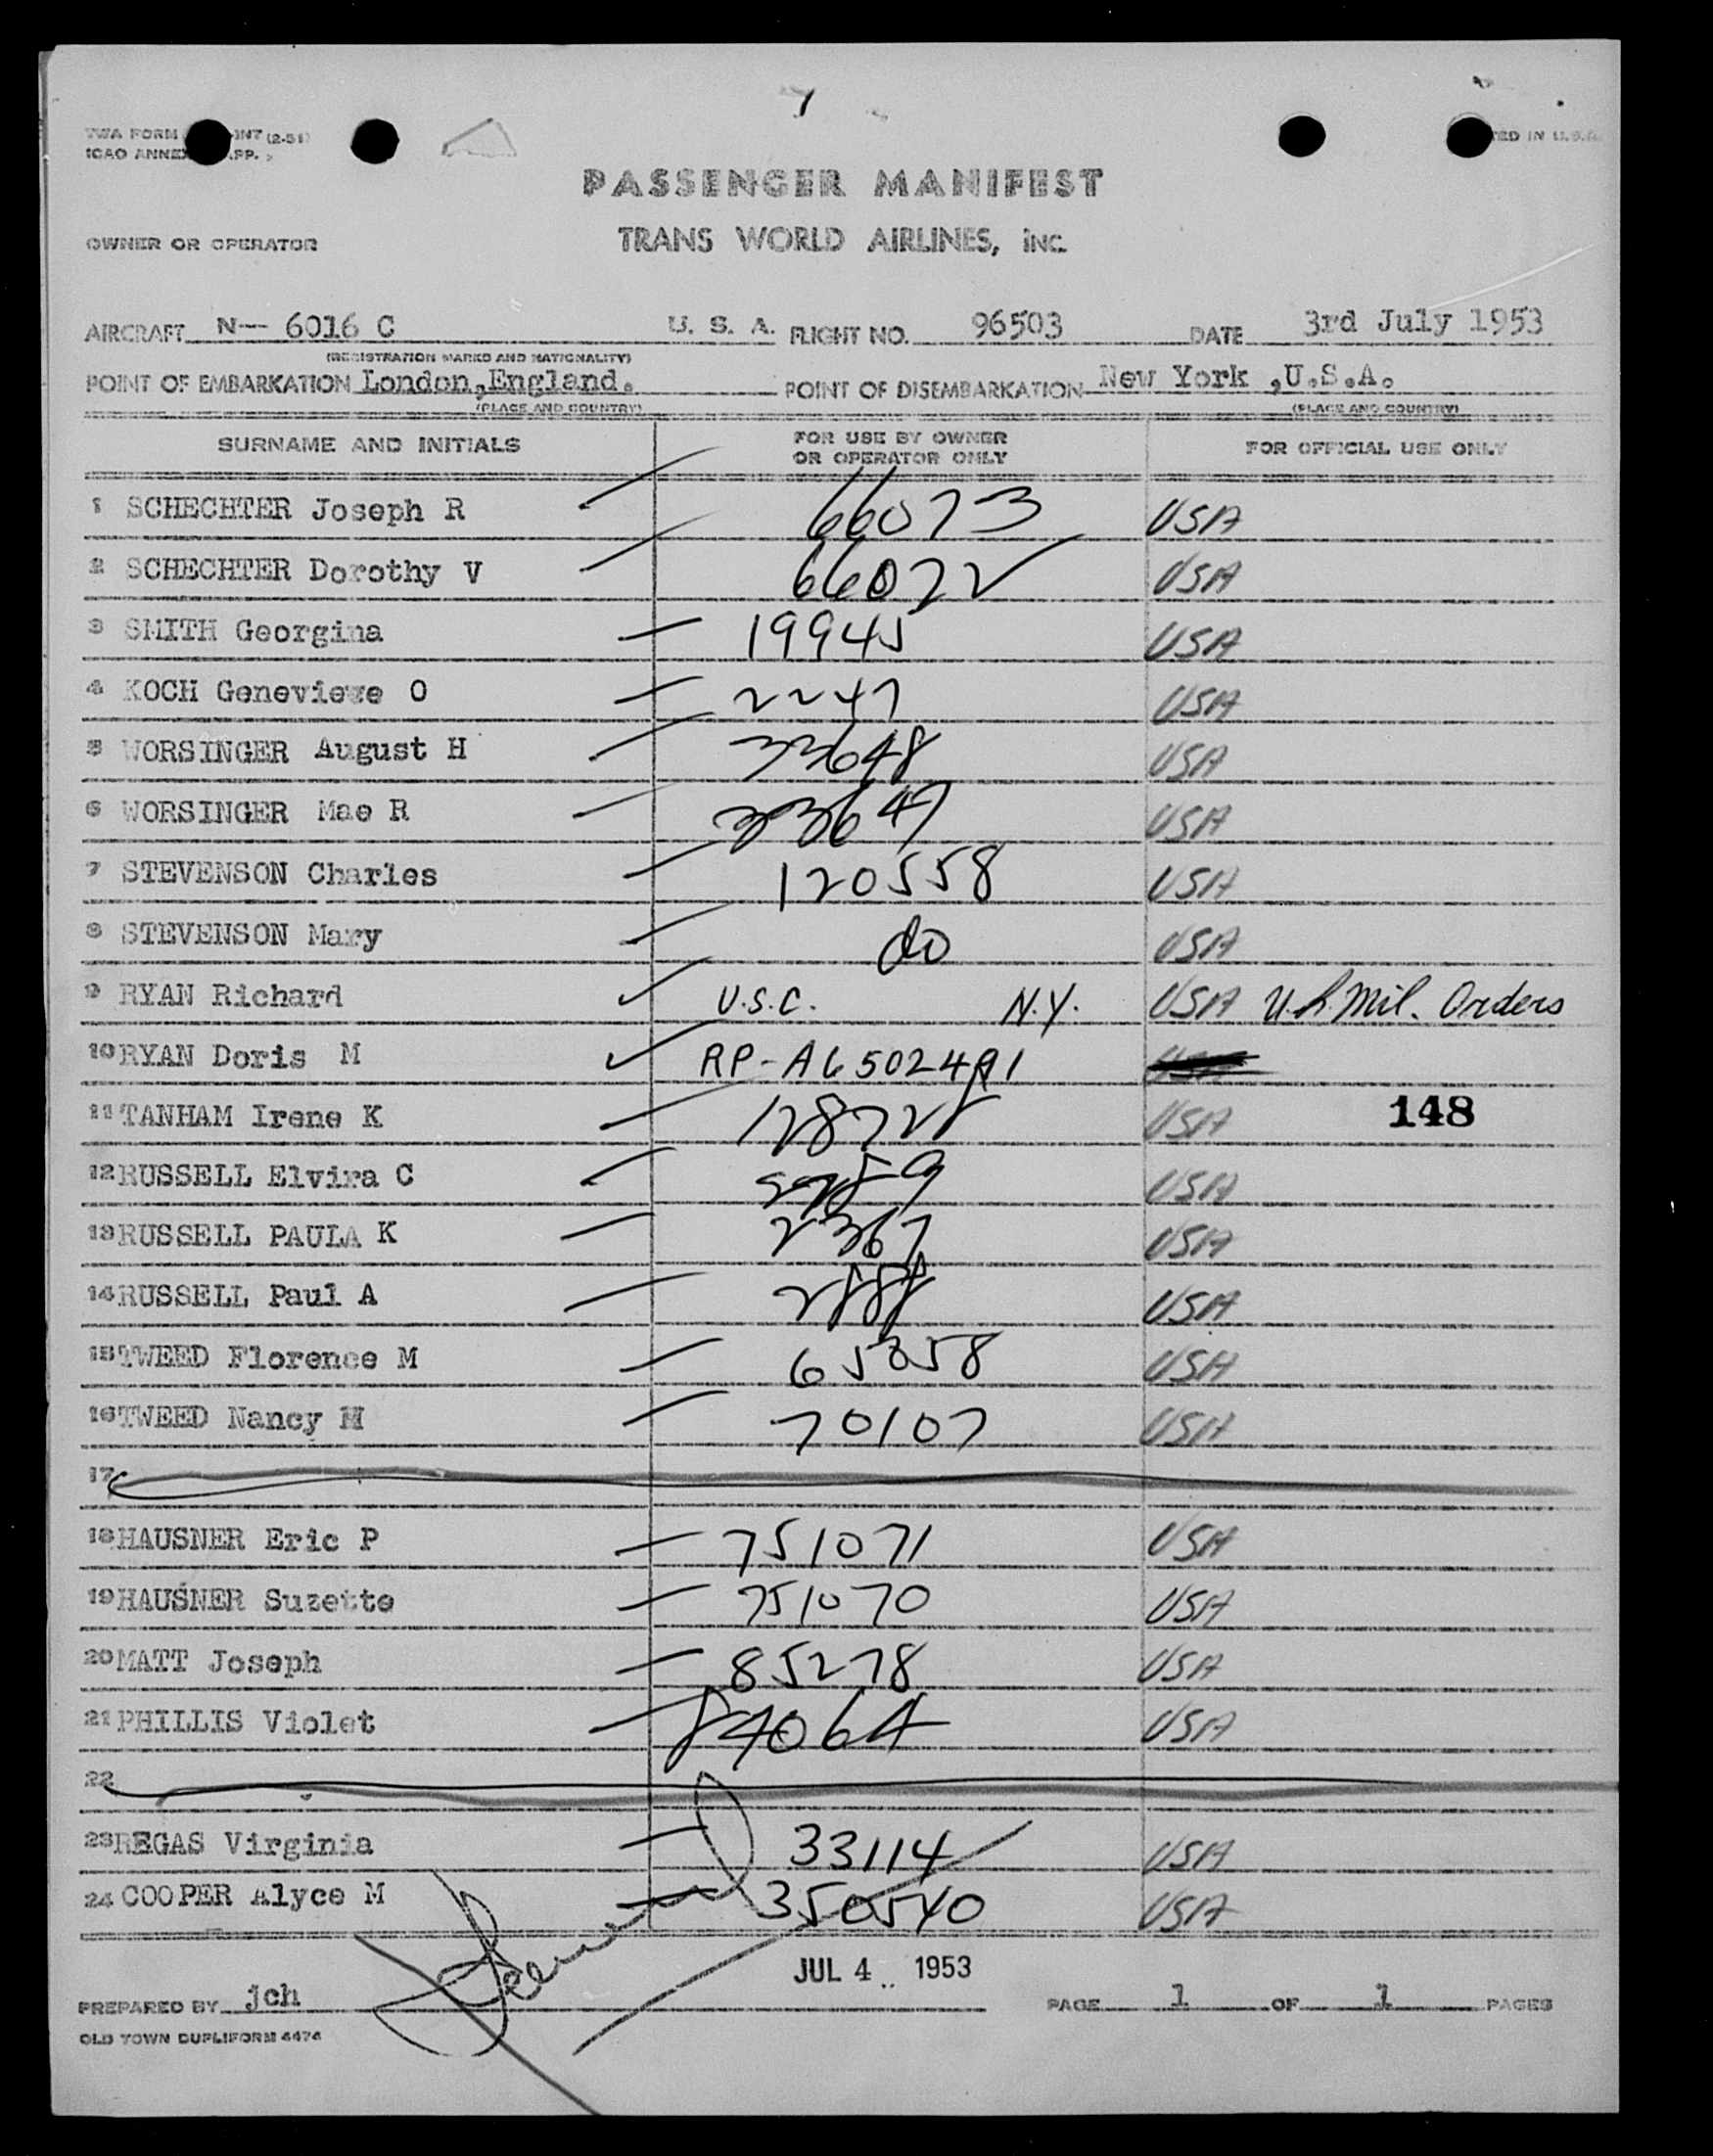 1
TWA FORM INT (2-51)
ICAO ANNEX APP.
TED IN U.S.A.
PASSENGER MANIFEST
OWNER OR OPERATOR TRANS WORLD AIRLINES, INC.
AIRCRAFT N-- 6016 C U. S. A. FLIGHT NO. 96503 DATE 3rd July 1953
(REGISTRATION MARKS AND NATIONALITY)
POINT OF EMBARKATION London,England. POINT OF DISEMBARKATION New York ,U.S.A.
(PLACE AND COUNTRY) (PLACE AND COUNTRY)
SURNAME AND INITIALS FOR USE BY OWNER OR OPERATOR ONLY FOR OFFICIAL USE ONLY
1 SCHECHTER Joseph R 66073 USA
2 SCHECHTER Dorothy V 66072 USA
3 SMITH Georgina 19945 USA
4 KOCH Genevieve O 2247 USA
5 WORSINGER August H 33648 USA
6 WORSINGER Mae R 33647 USA
7 STEVENSON Charles 120558 USA
8 STEVENSON Mary do USA
9 RYAN Richard U.S.C. N.Y. USA U.S. Mil. Orders
10 RYAN Doris M RP-A6502491
11 TANHAM Irene K USA 148
12 RUSSELL Elvira C USA
13 RUSSELL PAULA K 2367 USA
14 RUSSELL Paul A USA
15 TWEED Florence M 65358 USA
16 TWEED Nancy H 70107 USA
17
18 HAUSNER Eric P 751071 USA
19 HAUSNER Suzette 751070 USA
20 MATT Joseph 85278 USA
21 PHILLIS Violet 84064 USA
22
23 REGAS Virginia 33114 USA
24 COOPER Alyce M 350540 USA
JUL 4 1953
PREPARED BY jch PAGE 1 OF 1 PAGES
OLD TOWN DUPLIFORM 4474